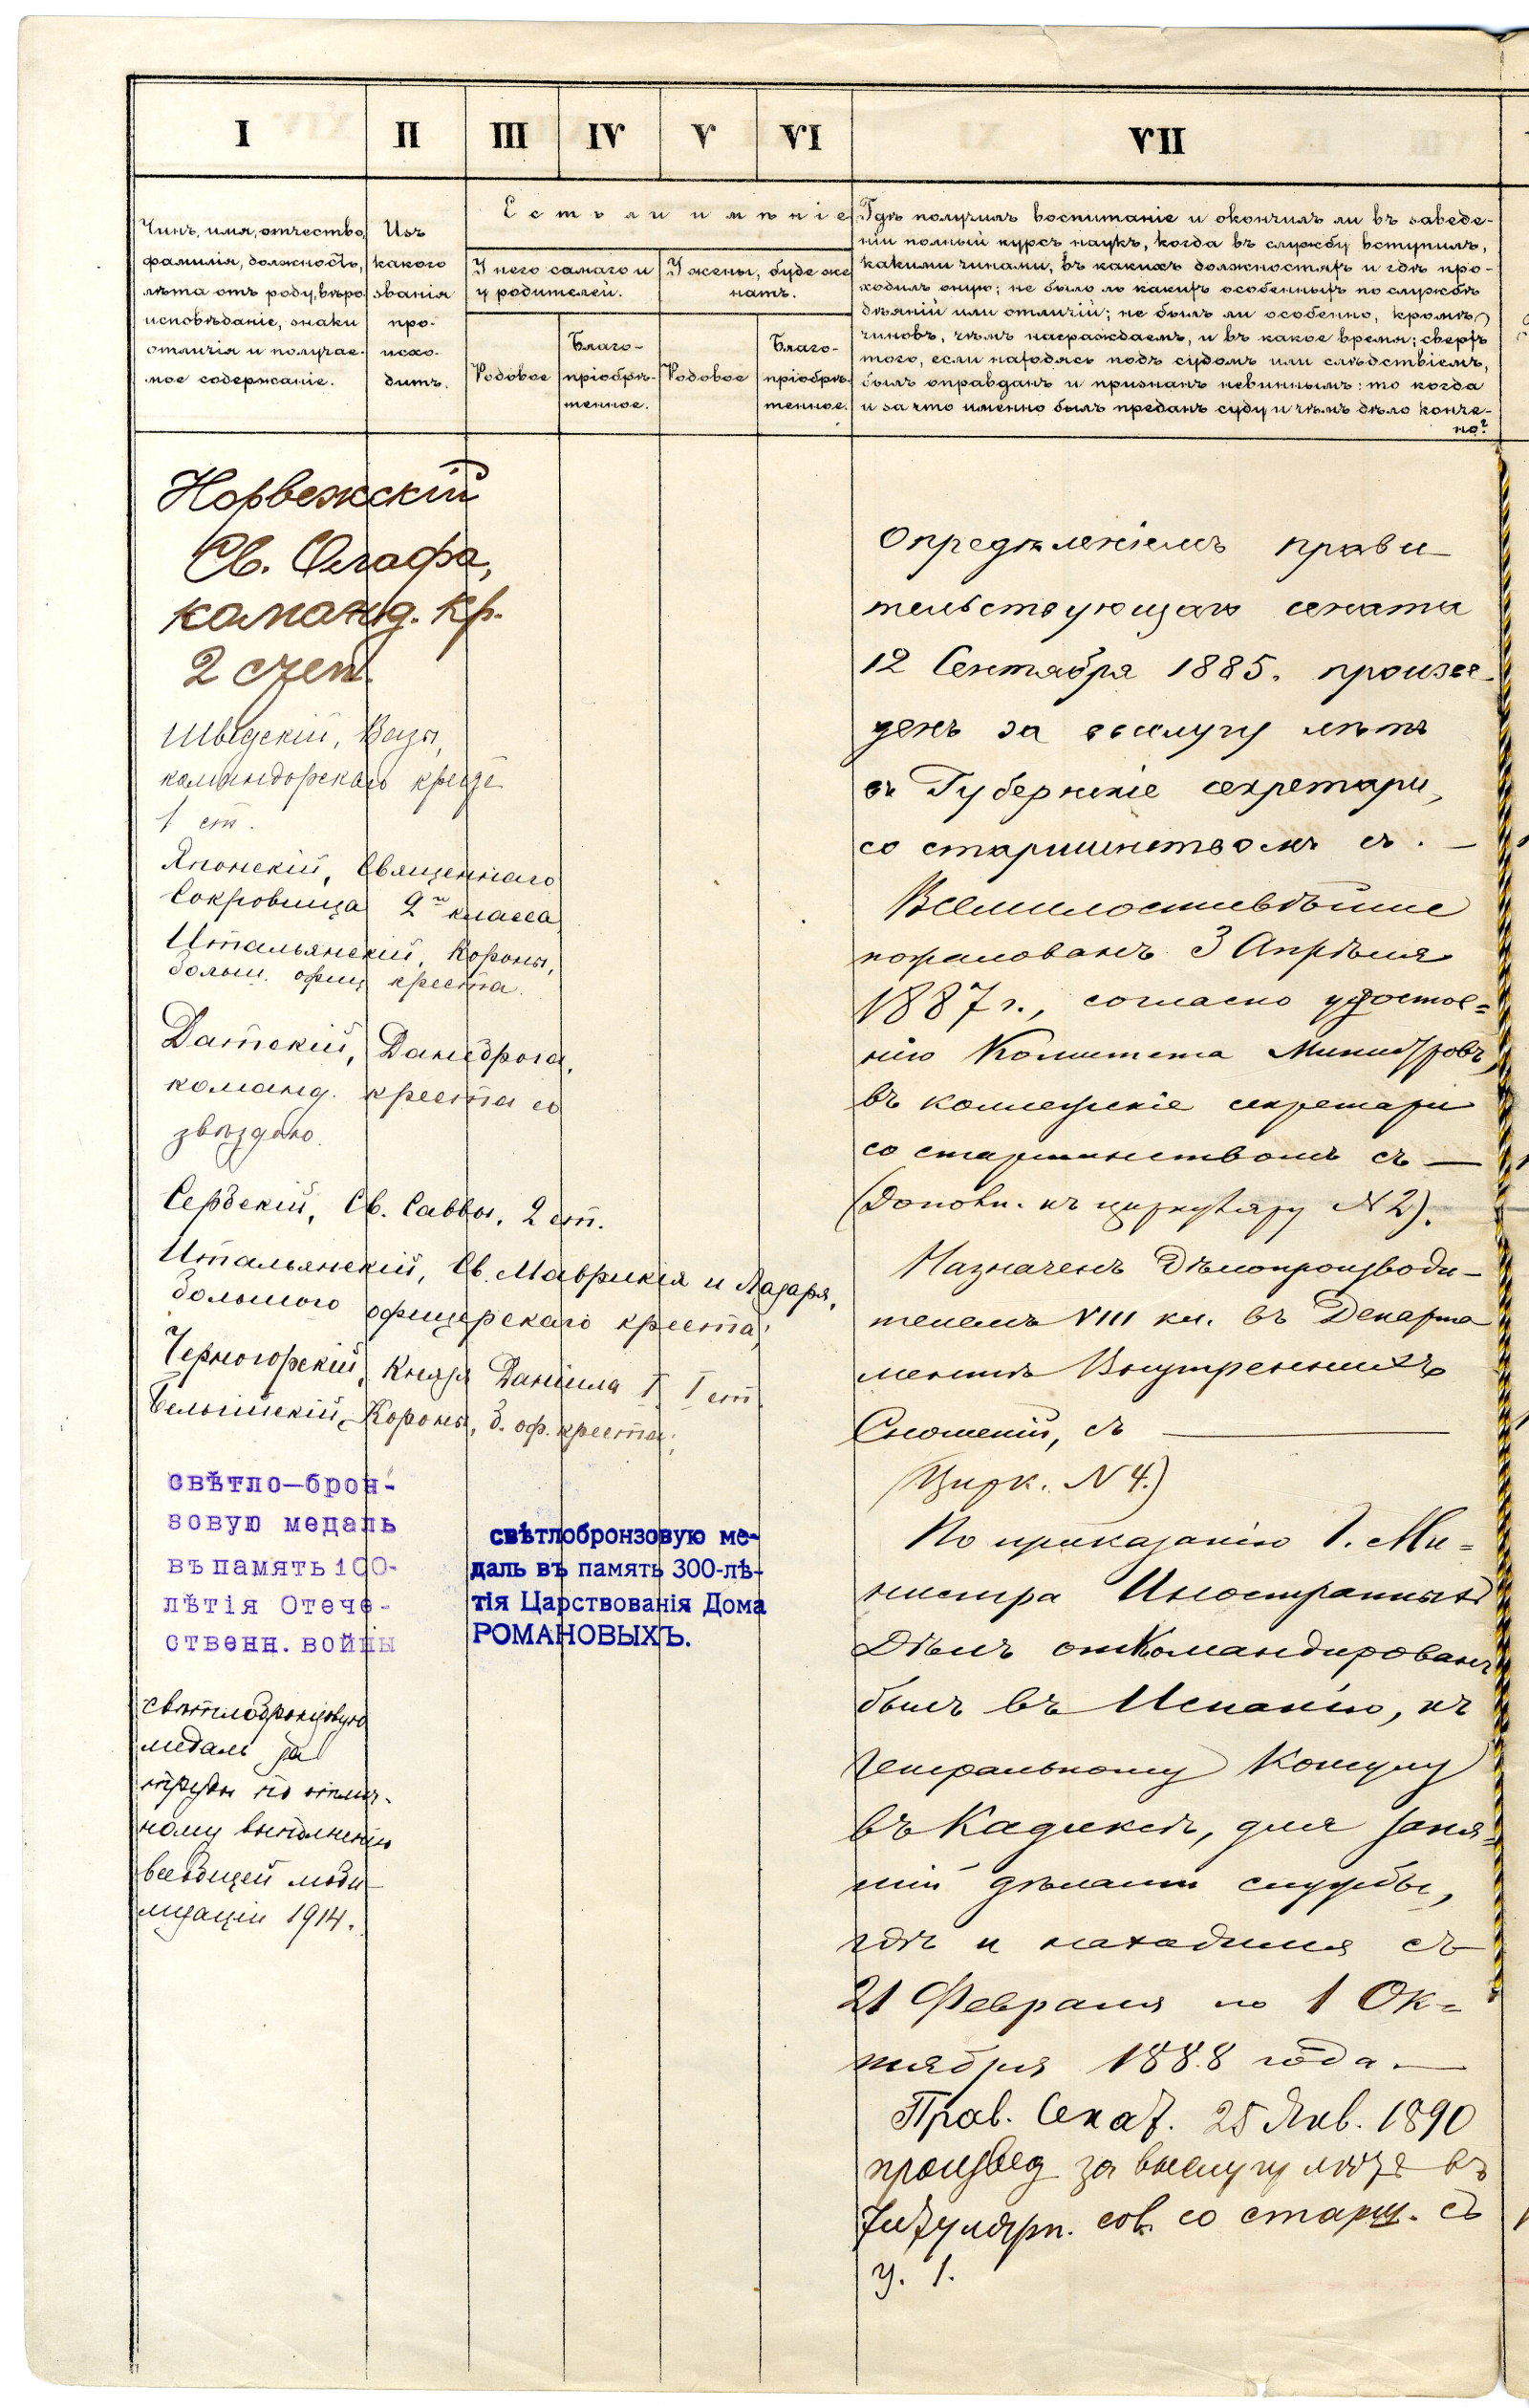 I
II
III
IV
V
VI
VII
Чинъ, имя, отчество,
фамилія, должность,
лѣта отъ роду, вѣро
исповѣданіе, знаки
отличія и получае-
мое содержаніе.
Изъ
какого
званія
про-
исхо-
дитъ.
Есть ли имѣніе
У него самаго и
у родителей.
У жены, буде же
натъ.
Родовое
Благо-
пріобрѣ-
тенное.
Родовое
Благо-
пріобрѣ-
тенное.
Гдѣ получилъ воспитаніе и окончилъ ли въ заведе-
ніи полный курсъ наукъ, когда въ службу вступилъ,
какими чинами, въ какихъ должностяхъ и гдѣ про-
ходилъ оную; не было ло какихъ особенныхъ по службѣ
дѣяній или отличій; не былъ ли особенно, кромѣ
чиновъ, чѣмъ награждаемъ, и въ какое время; сверхъ
того, если находясь подъ судомъ или слѣдствіемъ,
былъ оправданъ и признанъ невиннымъ: то когда
и за что именно былъ преданъ суду и чѣмъ дѣло конче-
но?
Норвежскій
Св. Олафа,
команд. кр.
2 степ.
Шведскій, Вазы,
командорскаго креста
1 ст.
Японскій, Священнаго
Сокровища 2го класса
Итальянскій, Короны,
больш. офиц. креста.
Датскій, Данеброга,
команд. креста со
звѣздою.
Сербскій, Св. Саввы, 2 ст.
Итальянскій, Св. Маврикія и Лазаря,
большого офицерскаго креста;
Черногорскій, Князя Даніила I, I ст.
Бельгійскій, Короны, б. оф. креста;
свѣтло-брон-
зовую медаль
въ память 100-
лѣтія Отече-
ственн. войны
свѣтлобронзовую ме-
даль въ память 300-лѣ-
тія Царствованія Дома
РОМАНОВЫХЪ.
свѣтлобронзовую
медаль за
труды по отлич-
ному выполненію
всеобщей моби-
лизаціи 1914.
Опредѣленіемъ прави-
тельствующаго сената
12 Сентября 1885. произве-
денъ за выслугу лѣтъ
въ Губернскіе секретари,
со старшинствомъ съ. —
Всемилостивѣйше
пожалованъ 3 Апрѣля
1887 г., согласно удостое=
нію Комитета Министровъ,
въ коллежскіе секретари
со старшинствомъ съ —
(Дополн. къ циркуляру N 2).
Назначенъ Дѣлопроизводи-
телемъ VIII кл. въ Департа
ментъ Внутреннихъ
Сношеній, съ —
(Цирк. N 4.)
По приказанію Г. Ми=
нистра Иностранныхъ
Дѣлъ откомандированъ
былъ въ Испанію, къ
Генеральному Консулу
въ Кадиксѣ, для заня-
тій дѣлами службы,
гдѣ и находился съ
21 Февраля по 1 Ок=
тября 1888 года. —
Прав. Сенат. 25 Янв. 1890
произвед за выслугу лѣтъ въ
Титулярн. сов. со старш. съ